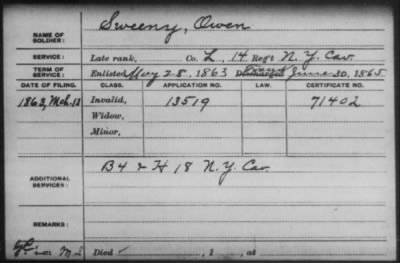 Sweeny, Owen
NAME OF SOLDIER:
SERVICE: Late rank, Co. L, 14 Reg't N. Y. Cav.
TERM OF SERVICE: Enlisted May 28, 1863 Discharged June 30, 1865
DATE OF FILING. CLASS. APPLICATION NO. LAW. CERTIFICATE NO.
1863, Mch. 13 Invalid, 13519 71402
Widow,
Minor,
B 4 & H 18 N. Y. Cav.
ADDITIONAL SERVICES:
REMARKS:
Died , 1 , at